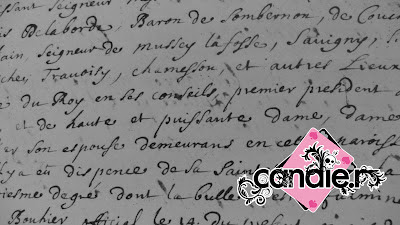 ssant Seigneur
is Delaborde Baron de Sombernon, de Couco
lain, Seigneur de mussey la fosse, Savigny,
ches, Travoisy, chamesson, et autres Lieux
e du Roy en ses conseils, premier president a
et de haute et puissante dame, dame
er son espouse demeurans en ce paroiss
il y a eu dispence de sa Sain
riesme degré dont la bulle
Bouhier official le 14. du
candie.r